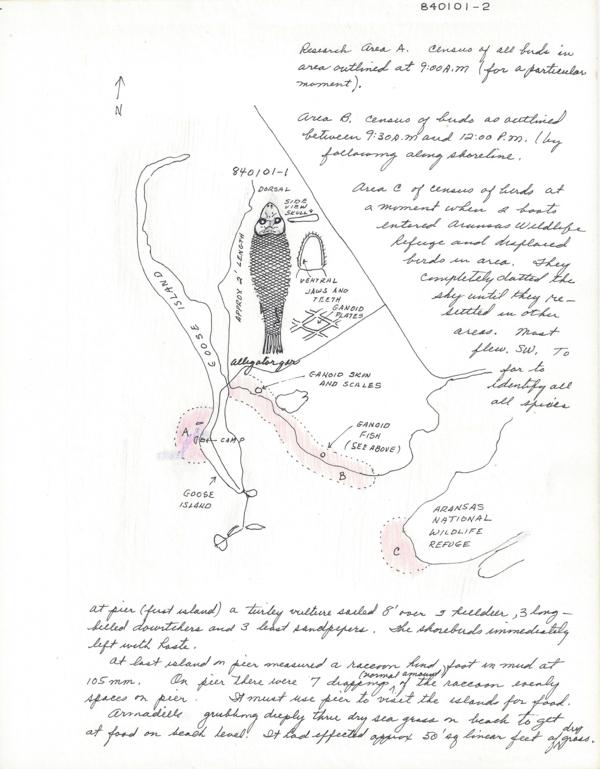 840101-2
Research Area A. Census of all birds in
area outlined at 9:00 A.M (for a particular
moment).
N
Area B. Census of birds as outlined
between 9:30 A.M and 12:00 P.M. (by
following along shoreline.
Area C of census of birds at
a moment when 2 boats
entered Aransas Wildlife
Refuge and displaced
birds in area. They
completely dotted the
sky until they re-
settled in other
areas. Most
flew SW. To
far to
identify all
all spices
840101-1
DORSAL
SIDE
VIEW
SKULL
APPROX 2' LENGTH
VENTRAL
JAWS AND
TEETH
GANOID
PLATES
alligator gar
GOOSE ISLAND
GANOID SKIN
AND SCALES
GANOID
FISH
(SEE ABOVE)
A
CAMP
B
GOOSE
ISLAND
ARANSAS
NATIONAL
WILDLIFE
REFUGE
C
at pier (first island) a turkey vulture sailed 8' over killdeer, 3 long-
billed dowitchers and 3 least sandpipers. The shorebirds immediately
left with haste.
At last island on pier measured a raccoon hind foot in mud at
105 mm. On pier there were 7 droppings (normal amount) of the raccoon evenly
spaces on pier. It must use pier to visit the islands for food.
Armadillo grubbing deeply thru dry sea grass on beach to get
at food on beach level. It had effected approx 50' sq linear feet of dry grass.